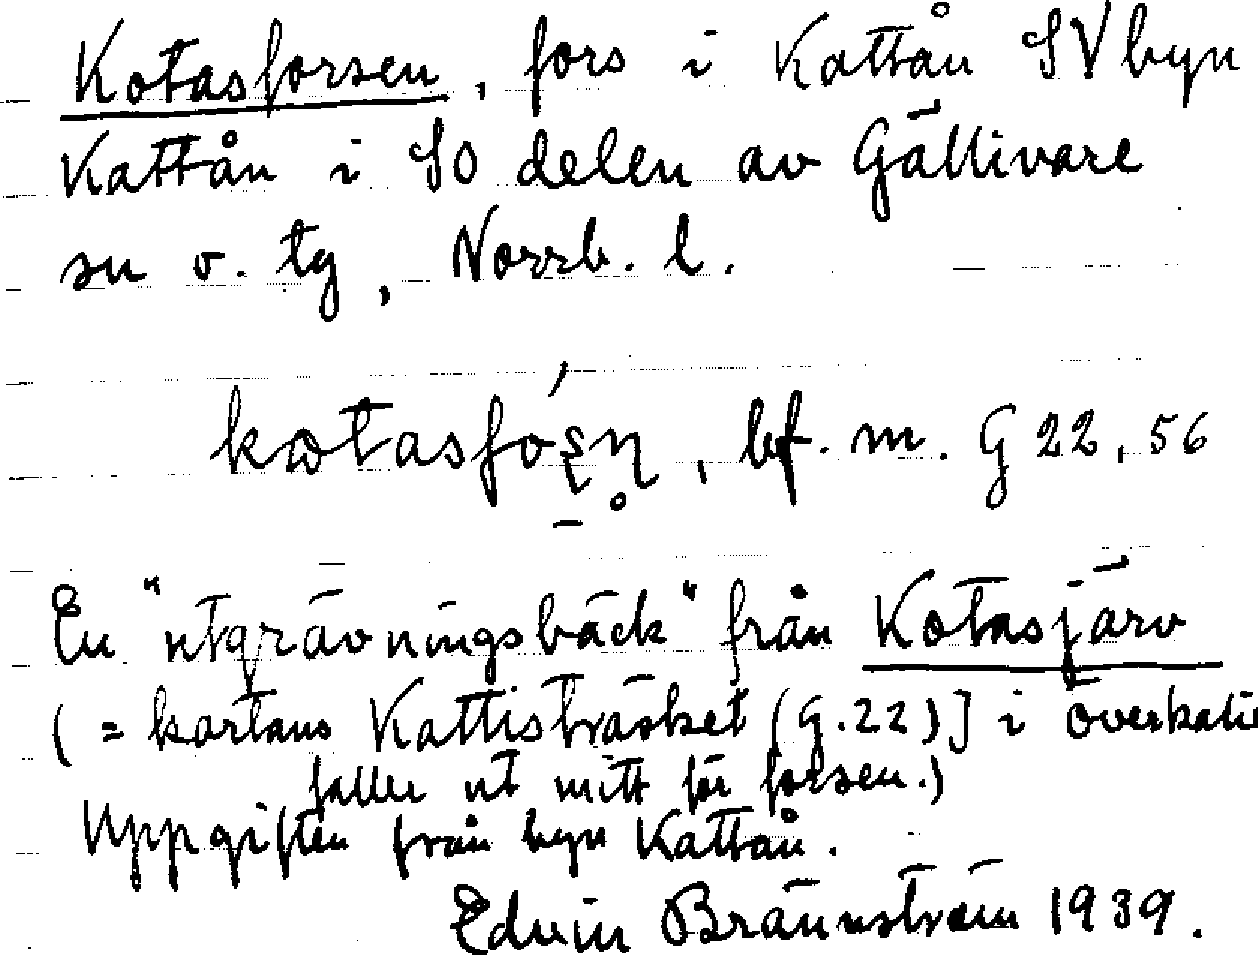 Kotasforsen, fors i Kattån SV byn
Kattån i SO delen av Gällivare
sn o. tg, Norrb. l.
kotasfó̱ʂn̥, bf. m. G 22, 56
En "utgrävningsbäck" från Kotasjärv
( = kartans Kattisträsket (G.22)] i Överkalix
faller ut mitt för forsen.)
Uppgiften från byn Kattån.
Edvin Brännström 1939.